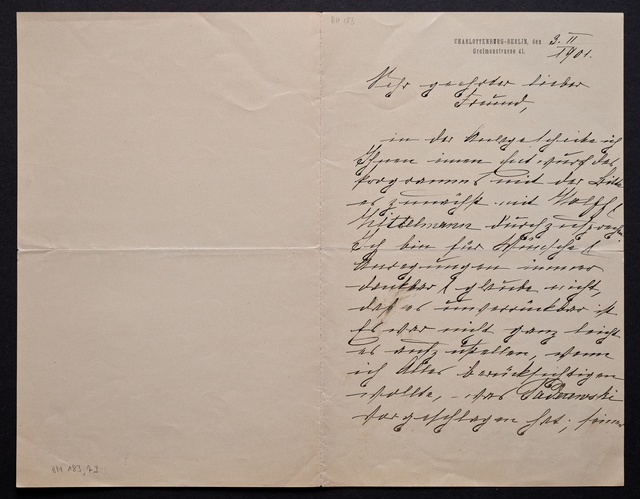 BH 183
CHARLOTTENBURG-BERLIN, den 3. II
Grolmanstrasse 41. 1901.
Sehr geehrter lieber
Freund,
in der Anlage schicke ich
Ihnen einen Entwurf des
Programms mit der Bitte
es zunächst mit Wolff &
Mittelmann durchzusprechen
Ich bin für Wünsche &
Anregungen immer
dankbar & glaube nicht,
daß es unverrückbar ist
Es war nicht ganz leicht
es aufzustellen, wenn
ich Alles berücksichtigen
wollte, was
vorgeschlagen hat,
BH 183, 72